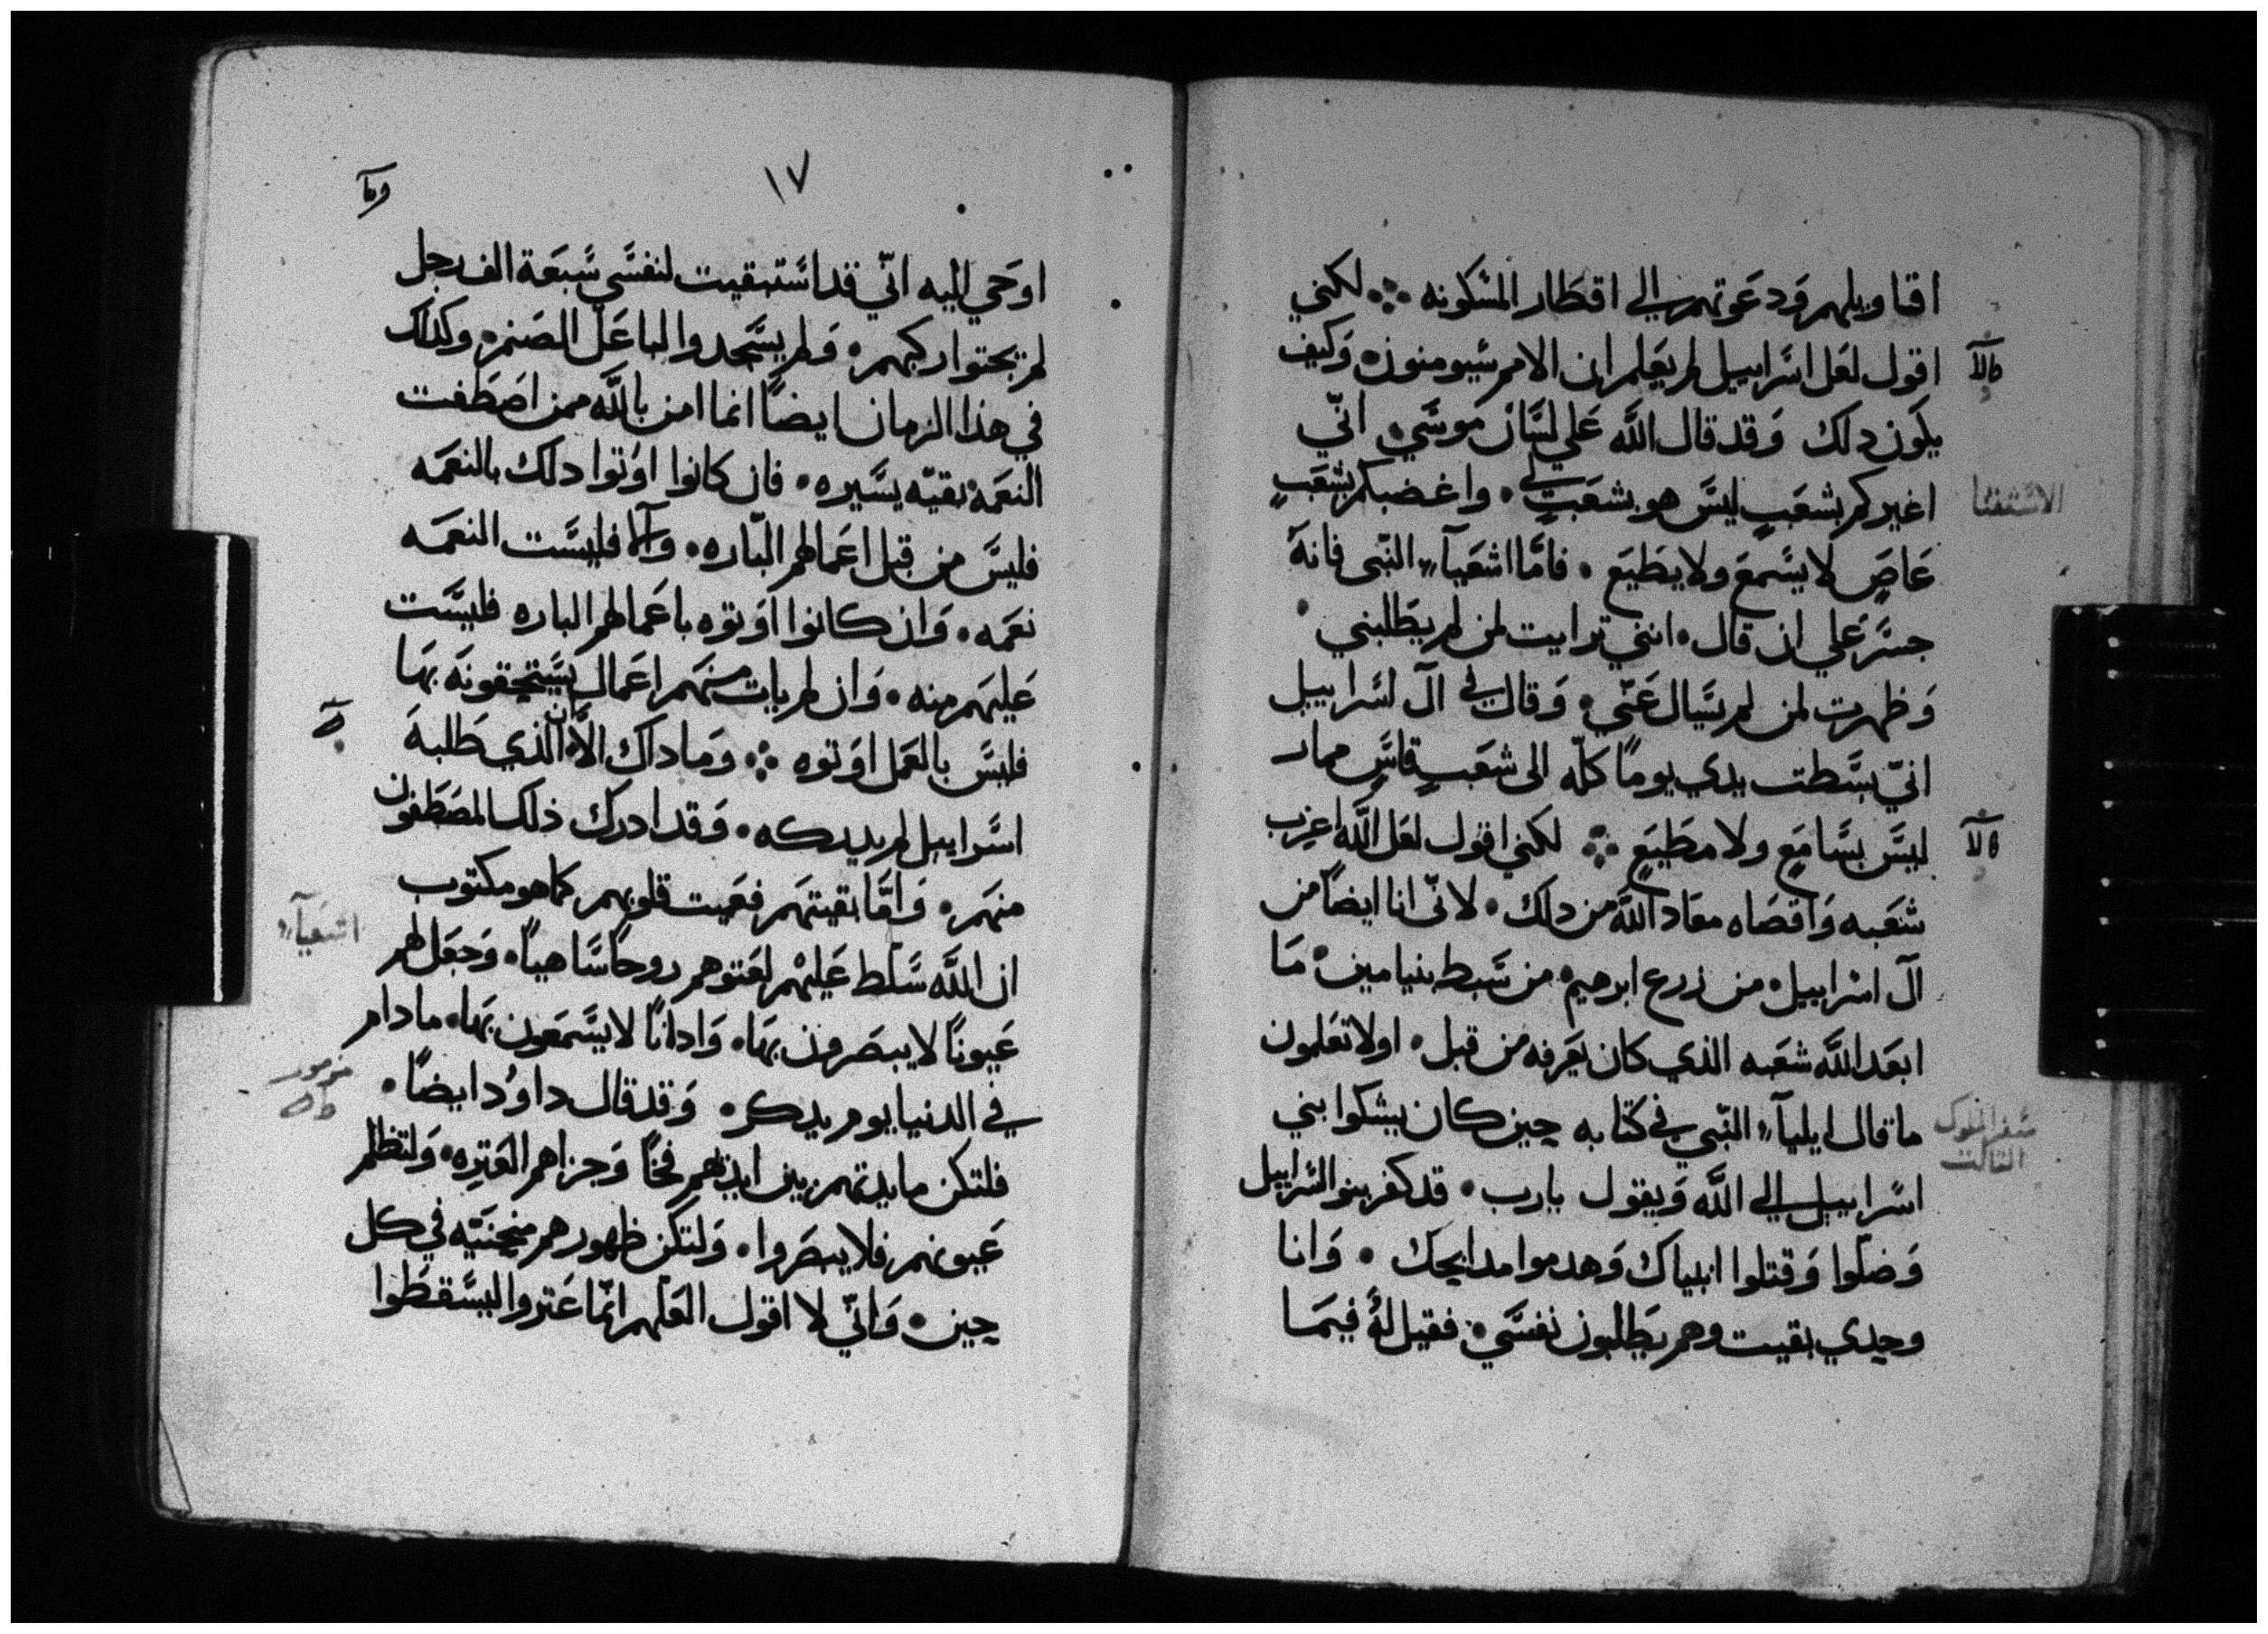 اقاويلهم ودعوتهم الي اقطار المسكونه لكني
اقول لعل اسراييل لم يعلم ان الامم سيومنون وكيف
يكون دلك وقد قال الله علي لسان موسي اني
اغيركم بشعب ليس هو بشعب لي واغضبكم بشعب
الاستثنا
عاص لا يسمع ولا يطيع فاما اشعيآ النبي فانه
جسر علي ان قال انني ترايت لمن لم يطلبني
وظهرت لمن لم يسال عني وقال في آل اسراييل
اني بسطت يدي يوما كله الى شعب قاس ممار
ليس بسامع ولا مطيع لكني اقول لعل الله اعزب
شعبه واقصاه معاد الله من دلك لاني انا ايضا من
آل اسراييل من زرع ابرهيم من سبط بنيامين ما
ابعد الله شعبه الذي كان يعرفه من قبل اولا تعلمون
ما قال ايليآ النبي في كتابه حين كان يشكوا بني
سفر الملوك
الثالث
اسراييل الي الله ويقول يارب قد كفر بنو اسراييل
وضلوا وقتلوا انبياك وهدموا مدابحك وانا
وحدي بقيت وهم يطلبون نفسي فقيل له فيما
١٧
اوحي اليه اني قد استبقيت لنفسي سبعة الف رجل
لم يجتوا ركبهم ولم يسجدوا لباعل الصنم وكدلك
في هذا الزمان ايضا انما امن بالله ممن اصطفت
النعمه بقيه يسيره فان كانوا اوتوا دلك بالنعمه
فليس من قبل اعمالهم الباره والا فليست النعمه
نعمه وان كانوا اوتوه باعمالهم الباره فليست
عليهم منه وان لم يات منهم اعمال يستحقونه بها
فليس بالعمل اوتوه وما داك الا ان الذي طلبه
اسراييل لم يدركه وقد ادرك ذلك المصطفون
منهم واما بقيتهم فعميت قلوبهم كما هو مكتوب
اشعيآ
ان الله سلط عليهم لعتوهم روحا ساهيا وجعل لهم
عيونا لا يبصرون بها وادانا لا يسمعون بها ما دام
في الدنيا يوم يدكر وقد قال داود ايضا
مزمور
فلتكن مايدتهم بين ايديهم فخا وجزاهم العتره ولتظلم
عيونهم فلا يبصروا ولتكن ظهورهم منحنيه في كل
حين واني لا اقول العلهم انما عتروا ليسقطوا